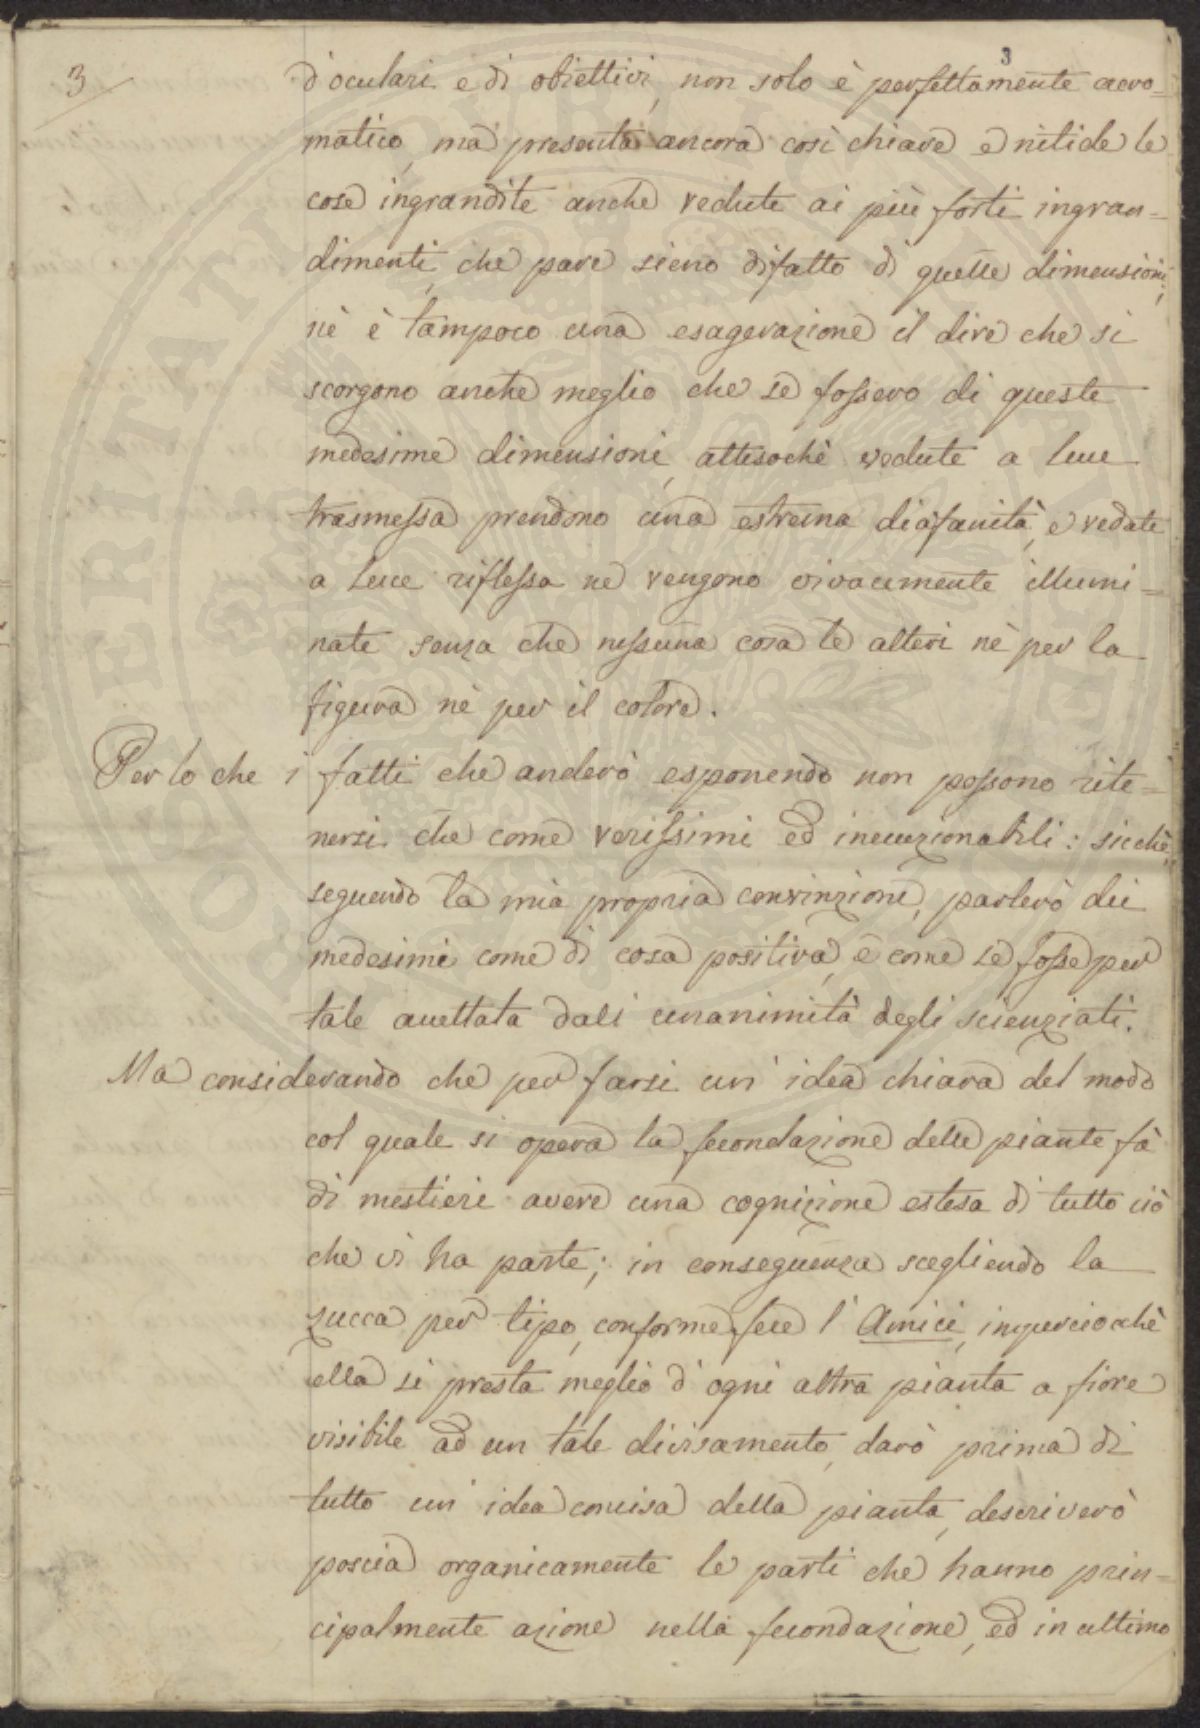 3
3
d'oculari e di obiettivi, non solo è perfettamente acro=
matico, ma presenta ancora così chiare e nitide le
cose ingrandite anche vedute ai più forti ingran=
dimenti, che pare sieno difatto di quelle dimensioni;
nè è tampoco una esagerazione il dire che si
scorgono anche meglio che se fossero di queste
medesime dimensioni, attesochè vedute a luce
trasmessa prendono una estrema diafanità, e vedute
a luce riflessa ne vengono vivacemente illumi=
nate senza che nessuna cosa le alteri nè per la
figura nè per il colore.
Per lo che i fatti che anderò esponendo non possono rite=
nersi che come verissimi ed ineccezionabili: sicchè,
seguendo la mia propria convinzione, parlerò dei
medesimi come di cosa positiva, e come se fosse per
tale accettata dall' unanimità degli scienziati.
Ma considerando che per farsi un' idea chiara del modo
col quale si opera la fecondazione delle piante fà
di mestieri avere una cognizione estesa di tutto ciò
che vi ha parte; in conseguenza scegliendo la
zucca per tipo, conforme fece l' Amici, imperciocchè
ella si presta meglio d' ogni altra pianta a fiore
visibile ad un tale divisamento, darò prima di
tutto un' idea concisa della pianta, descriverò
poscia organicamente le parti che hanno prin=
cipalmente azione nella fecondazione, ed in ultimo